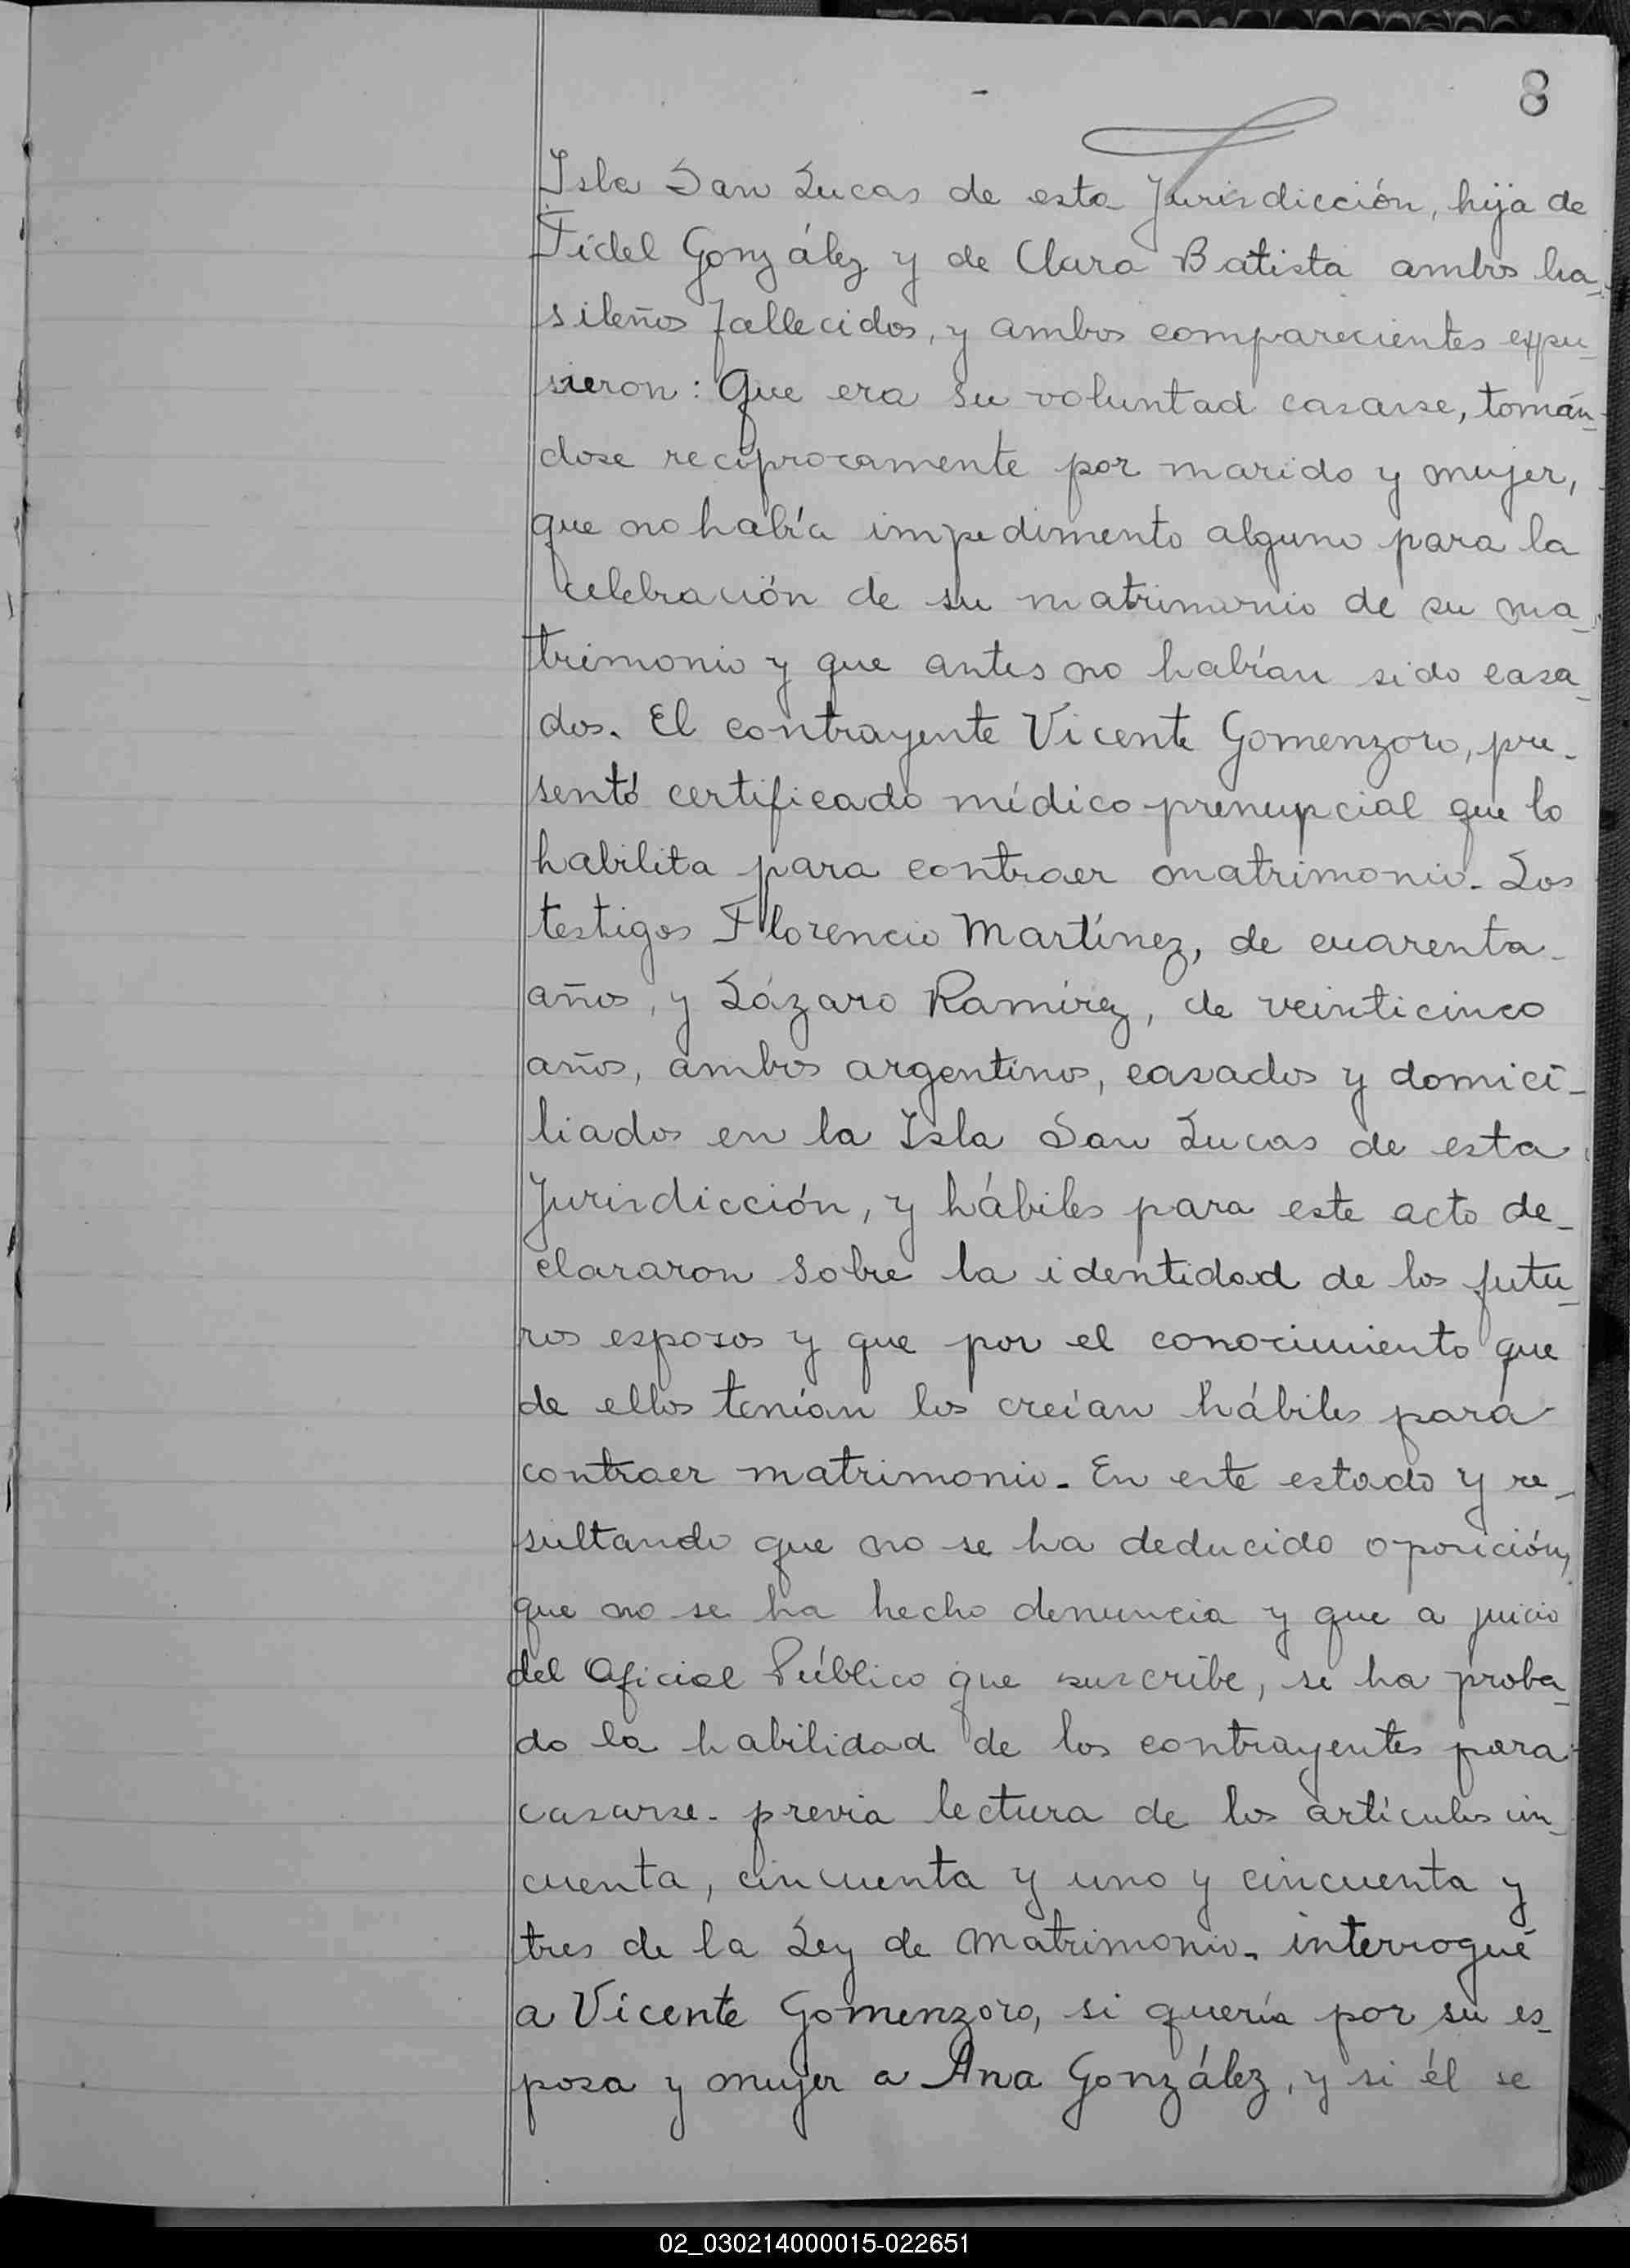 8
Isla San Lucas de esta Jurisdicción, hija de
Fidel González y de Clara Batista ambos ba-
sileños fallecidos, y ambos comparecientes expu-
sieron: Que era su voluntad casarse, tomán-
dose recíprocamente por marido y mujer,
que no había impedimento alguno para la
celebración de su matrimonio de su ma-
trimonio y que antes no habían sido casa-
dos. El contrayente Vicente Gomenzoro, pre-
sentó certificado médico prenupcial que lo
habilita para contraer matrimonio. Los
testigos Florencio Martínez, de cuarenta
años, y Lázaro Ramírez, de veinticinco
años, ambos argentinos, casados y domici-
liados en la Isla San Lucas de esta
Jurisdicción, y hábiles para este acto de-
clararon sobre la identidad de los futu-
ros esposos y que por el conocimiento que
de ellos tenían los creían hábiles para
contraer matrimonio. En este estado y re-
sultando que no se ha deducido oposición,
que no se ha hecho denuncia y que a juicio
del Oficial Público que suscribe, se ha proba-
do la habilidad de los contrayentes para
casarse. previa lectura de los artículos cin-
cuenta, cincuenta y uno y cincuenta y
tres de la Ley de Matrimonio. interrogué
a Vicente Gomenzoro, si quería por su es-
posa y mujer a Ana González, y si él se
02_030214000015-022651